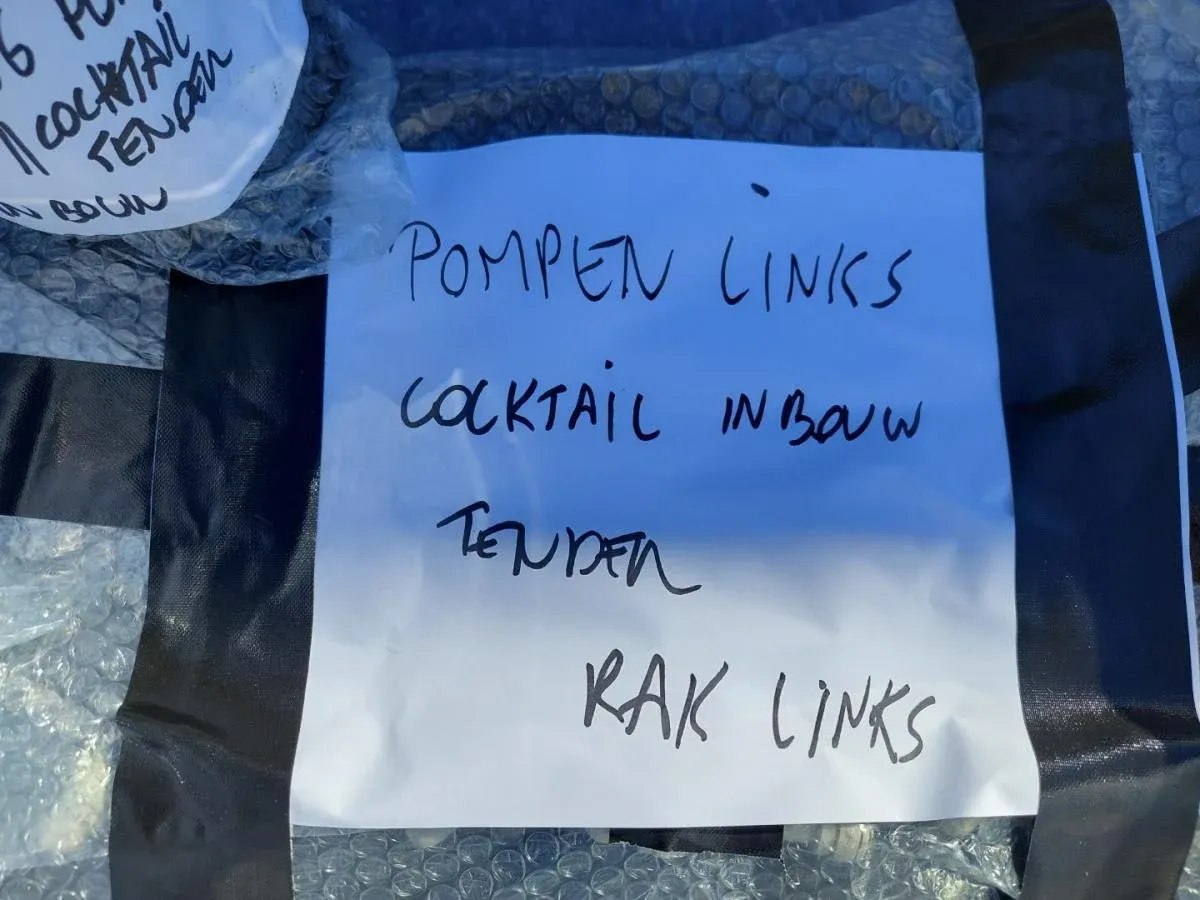 COCKTAIL
TENDER
BOUW
POMPEN LINKS
COCKTAIL INBOUW
TENDER
RAK LINKS